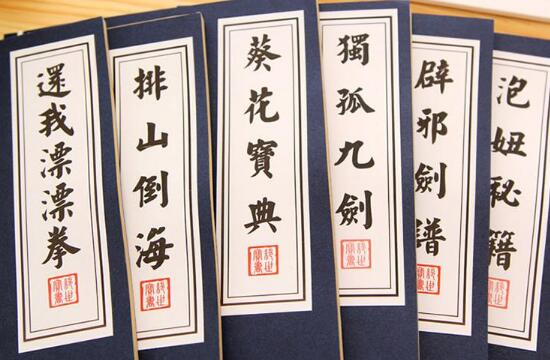 還我漂漂拳
排山倒海
葵花寶典
獨孤九劍
辟邪劍譜
泡妞秘籍